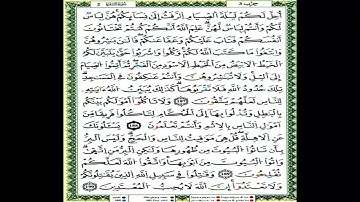 أُحِلَّ لَكُمْ لَيْلَةَ ٱلصِّيَامِ ٱلرَّفَثُ إِلَىٰ نِسَآئِكُمْ هُنَّ لِبَاسٌ
لَّكُمْ وَأَنتُمْ لِبَاسٌ لَّهُنَّ عَلِمَ ٱللَّهُ أَنَّكُمْ كُنتُمْ تَخْتَانُونَ
أَنفُسَكُمْ فَتَابَ عَلَيْكُمْ وَعَفَا عَنكُمْ فَٱلْـَٰٔنَ بَـٰشِرُوهُنَّ
وَٱبْتَغُوا۟ مَا كَتَبَ ٱللَّهُ لَكُمْ وَكُلُوا۟ وَٱشْرَبُوا۟ حَتَّىٰ يَتَبَيَّنَ لَكُمُ
ٱلْخَيْطُ ٱلْأَبْيَضُ مِنَ ٱلْخَيْطِ ٱلْأَسْوَدِ مِنَ ٱلْفَجْرِ ثُمَّ أَتِمُّوا۟ ٱلصِّيَامَ
إِلَى ٱلَّيْلِ وَلَا تُبَـٰشِرُوهُنَّ وَأَنتُمْ عَـٰكِفُونَ فِى ٱلْمَسَـٰجِدِ
تِلْكَ حُدُودُ ٱللَّهِ فَلَا تَقْرَبُوهَا كَذَٰلِكَ يُبَيِّنُ ٱللَّهُ ءَايَـٰتِهِۦ
لِلنَّاسِ لَعَلَّهُمْ يَتَّقُونَ ١٨٧ وَلَا تَأْكُلُوٓا۟ أَمْوَٰلَكُم بَيْنَكُم
بِٱلْبَـٰطِلِ وَتُدْلُوا۟ بِهَآ إِلَى ٱلْحُكَّامِ لِتَأْكُلُوا۟ فَرِيقًا مِّنْ
أَمْوَٰلِ ٱلنَّاسِ بِٱلْإِثْمِ وَأَنتُمْ تَعْلَمُونَ ١٨٨ يَسْـَٔلُونَكَ
عَنِ ٱلْأَهِلَّةِ قُلْ هِىَ مَوَٰقِيتُ لِلنَّاسِ وَٱلْحَجِّ وَلَيْسَ ٱلْبِرُّ
بِأَن تَأْتُوا۟ ٱلْبُيُوتَ مِن ظُهُورِهَا وَلَـٰكِنَّ ٱلْبِرَّ مَنِ ٱتَّقَىٰ
وَأْتُوا۟ ٱلْبُيُوتَ مِنْ أَبْوَٰبِهَا وَٱتَّقُوا۟ ٱللَّهَ لَعَلَّكُمْ
تُفْلِحُونَ ١٨٩ وَقَـٰتِلُوا۟ فِى سَبِيلِ ٱللَّهِ ٱلَّذِينَ يُقَـٰتِلُونَكُمْ
وَلَا تَعْتَدُوٓا۟ إِنَّ ٱللَّهَ لَا يُحِبُّ ٱلْمُعْتَدِينَ ١٩٠